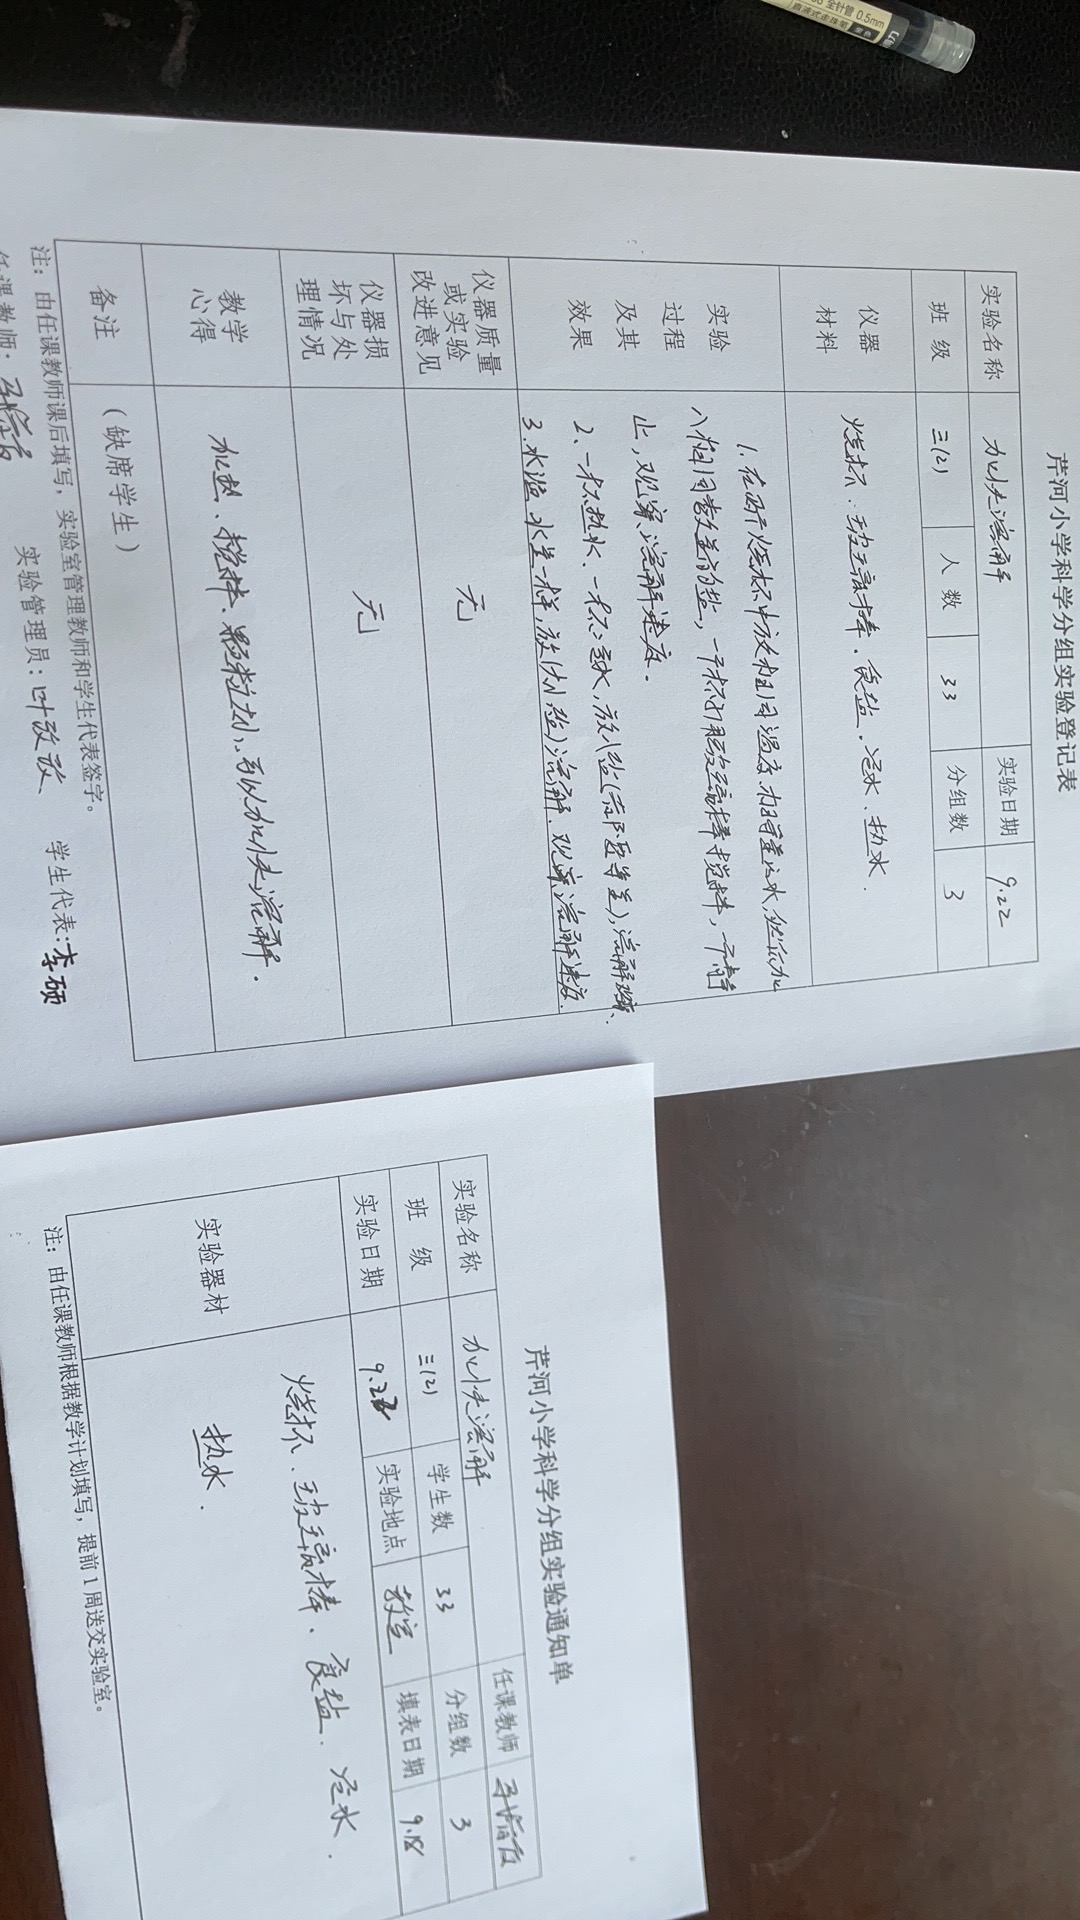 全针管 0.5mm
直液式走珠笔 黑色
芹河小学科学分组实验登记表
实验名称 加快溶解 实验日期 9.22
班 级 三(2) 人 数 33 分组数 3
仪器材料 烧杯、玻璃棒、食盐、冷水、热水.
实验过程及其效果
1.在两个烧杯中放相同温度、相等量冷水,然后加
入相同数量的盐,一杯用玻璃棒搅拌,一杯静
止,观察溶解速度.
2、一杯热水、一杯冷水,放入盐(
3.水温、水量一样,放(大小盐)溶解.观察溶解速度.
仪器质量或实验改进意见 无
仪器损坏与处理情况 无
教学心得 加热、搅拌、颗粒大小、可以加快溶解.
备注 (缺席学生)
注:由任课教师课后填写,实验室管理教师和学生代表签字。
任课教师:
实验管理员:叶改改 学生代表:李硕
芹河小学科学分组实验通知单
实验名称 加快溶解 任课教师
班 级 三(2) 学生数 33 分组数 3
实验日期 实验地点 教室 填表日期 9.18
实验器材 烧杯、玻璃棒、食盐、冷水.
热水.
注:由任课教师根据教学计划填写,提前1周送交实验室。